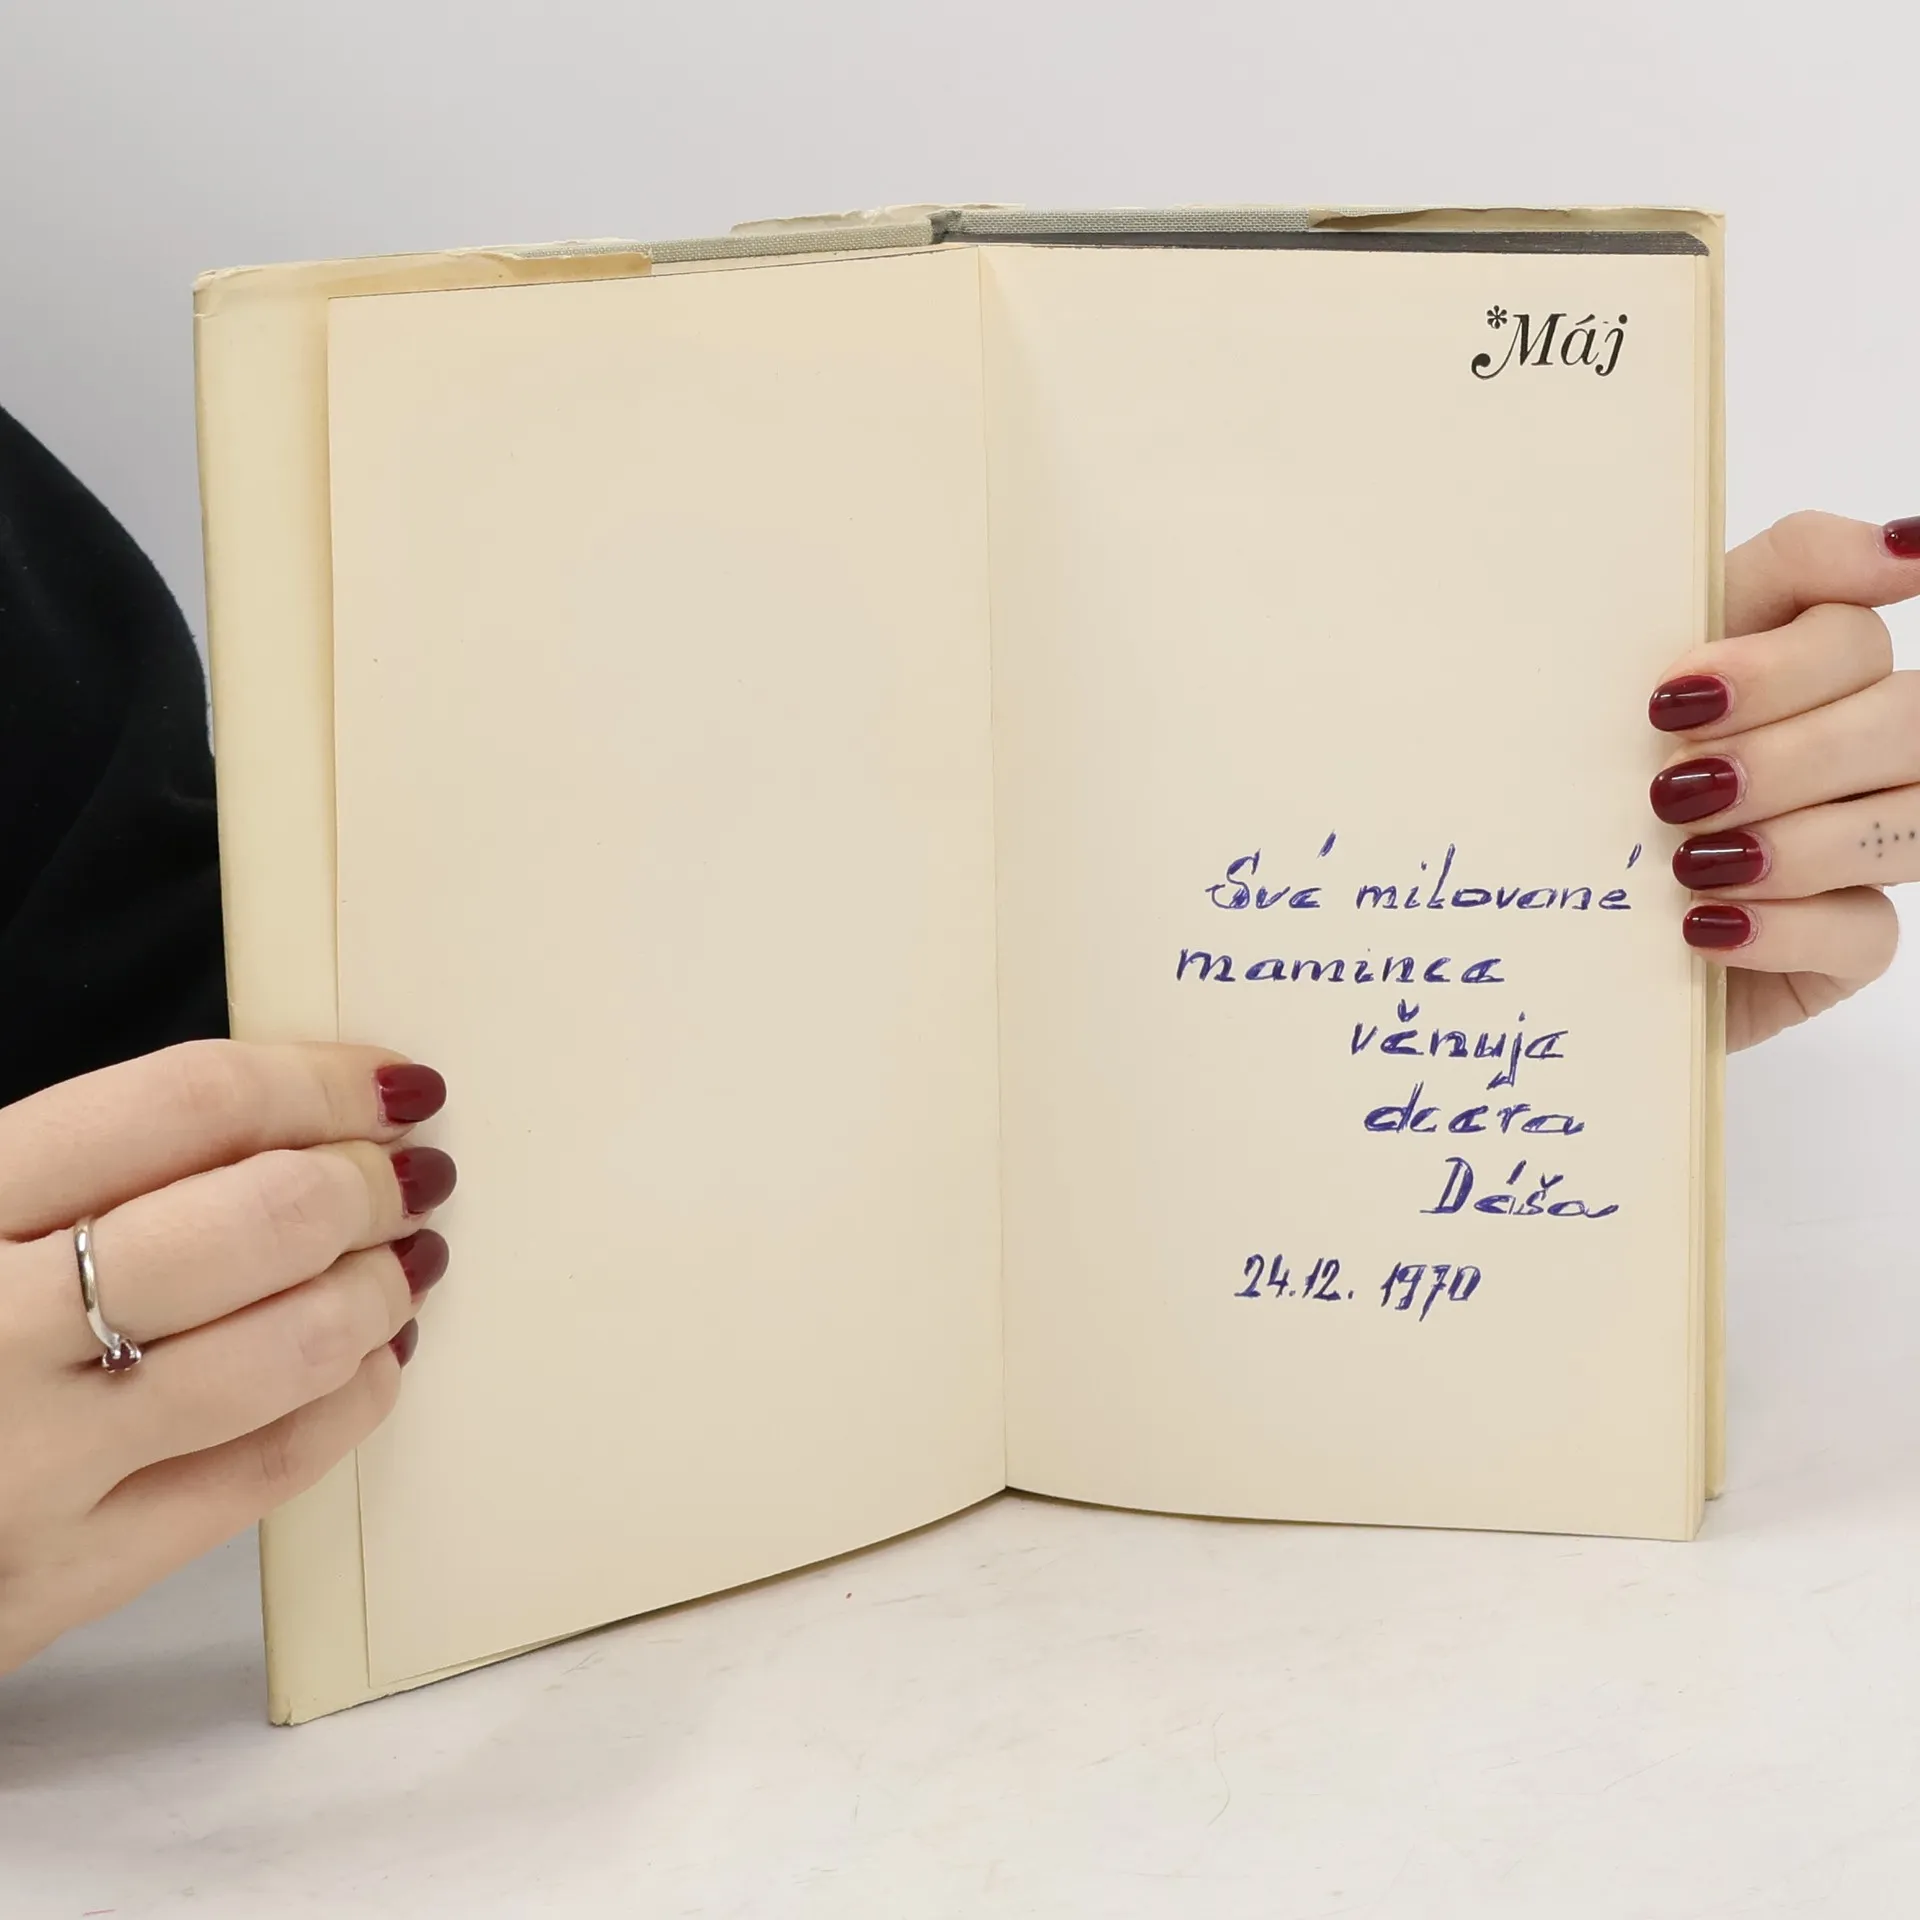 *Máj
Své milované
mamince
věnuje
dcera
Dáša
24.12. 1970